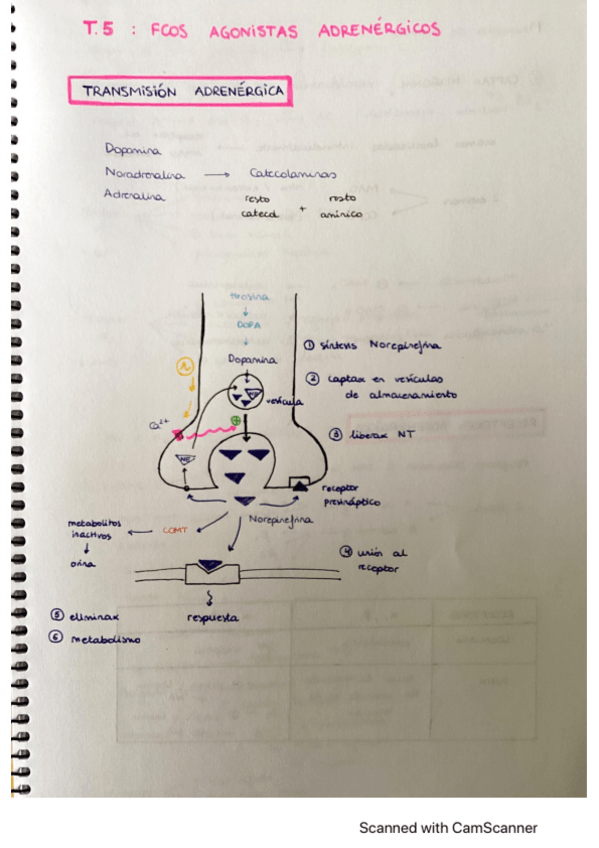 T.5 : FCOS AGONISTAS ADRENÉRGICOS
TRANSMISIÓN ADRENÉRGICA
Dopamina
Noradrenalina → Catecolaminas
Adrenalina
resto catecol + resto amínico
tirosina
↓
DOPA
↓
Dopamina
vesícula
Ca²⁺
NE
receptor
presináptico
Norepinefrina
COMT
metabolitos
inactivos
↓
orina
respuesta
① síntesis Norepinefrina
② captar en vesículas
de almacenamiento
③ liberar NT
④ unión al
receptor
⑤ eliminar
⑥ metabolismo
Scanned with CamScanner